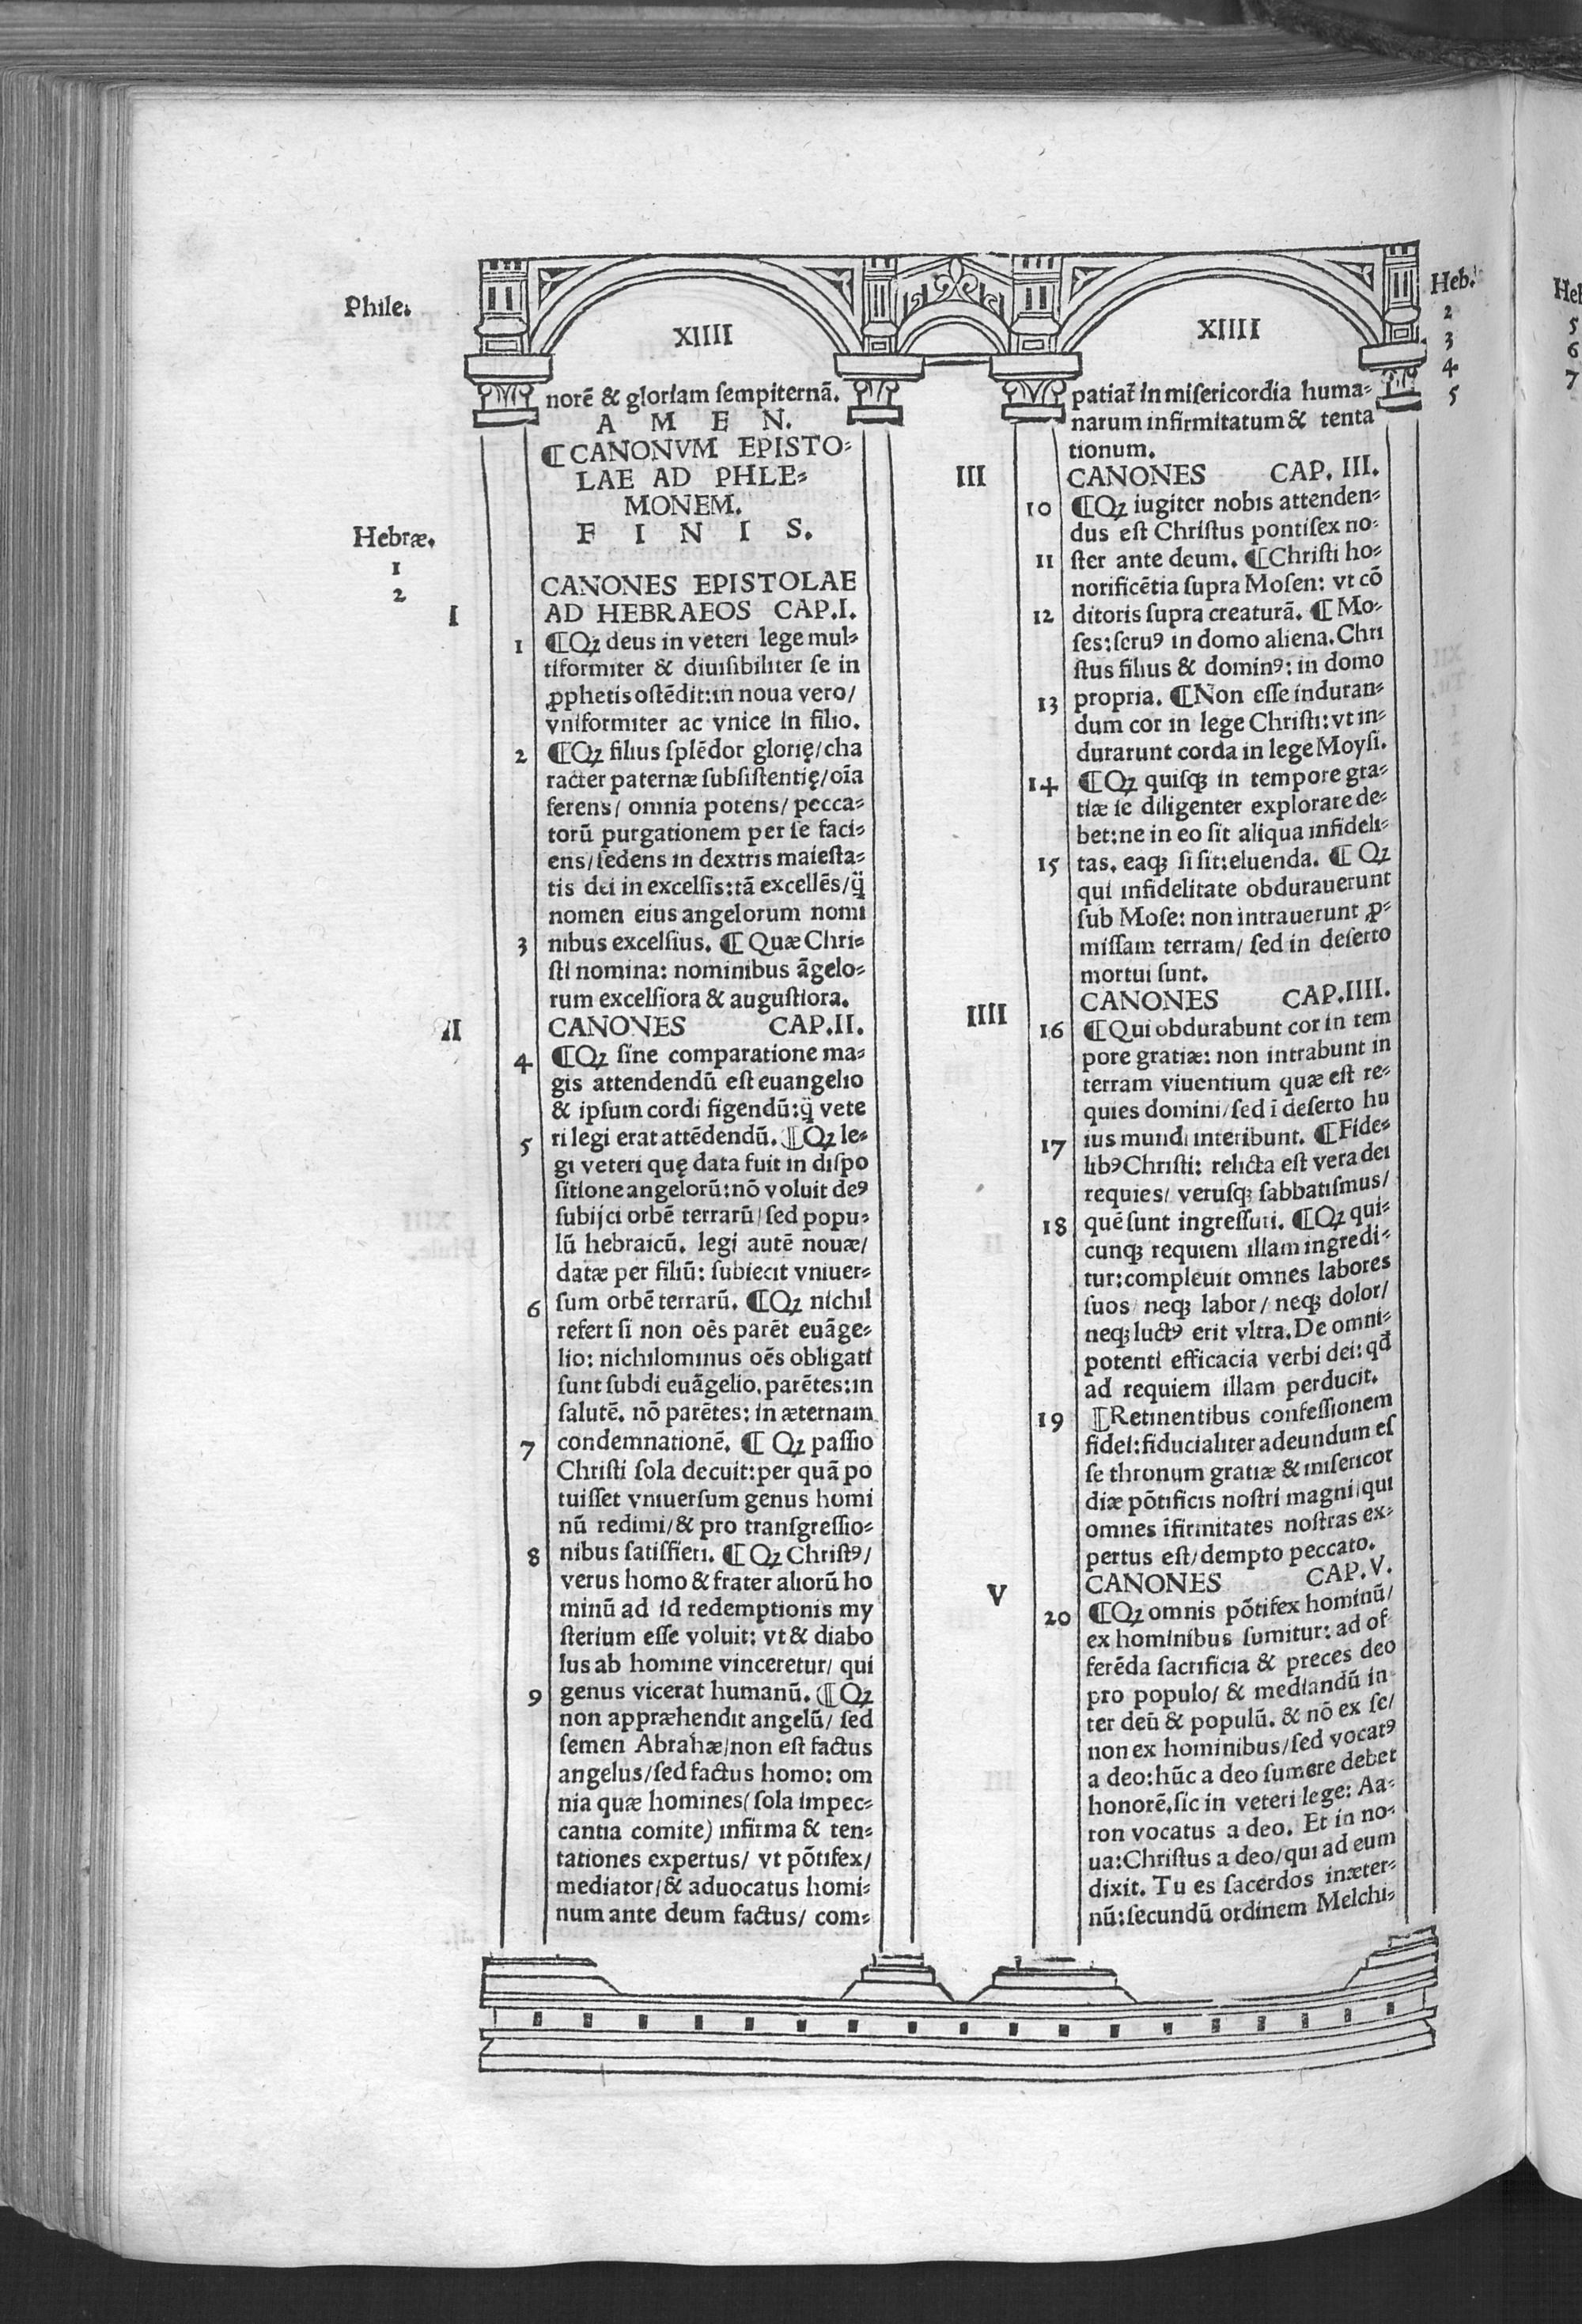 Phile.
XIIII
norē & gloriam ſempiternā.
A M E N.
¶CANONVM EPISTO⸗
LAE AD PHLE⸗
MONEM.
F I N I S.
Hebræ.
1
2
CANONES EPISTOLAE
I
AD HEBRAEOS CAP.I.
1 ¶Qꝫ deus in veteri lege mul⸗
tiformiter & diuiſibiliter ſe in
ꝓphetis oſtēdit:in noua vero/
vniformiter ac vnice in filio.
2 ¶Qꝫ filius ſplēdor glorię/cha
racter paternæ ſubſiſtentię/oīa
ferens/ omnia potens/ pecca⸗
torū purgationem per ſe faci⸗
ens/ſedens in dextris maieſta⸗
tis dei in excelſis:tā excellēs/q̈
nomen eius angelorum nomi
3 nibus excelſius. ¶Quæ Chri⸗
ſti nomina: nominibus āgelo⸗
rum excelſiora & auguſtiora.
II
CANONES CAP.II.
4 ¶Qꝫ ſine comparatione ma⸗
gis attendendū eſt euangelio
& ipſum cordi figendū:q̈ vete
5 ri legi erat attēdendū. ¶Qꝫ le⸗
gi veteri quę data fuit in diſpo
ſitione angelorū:nō voluit deꝰ
ſubijci orbē terrarū/ſed popu⸗
lū hebraicū. legi autē nouæ/
datæ per filiū: ſubiecit vniuer⸗
6 ſum orbē terrarū. ¶Qꝫ nichil
refert ſi non oēs parēt euāge⸗
lio: nichilominus oēs obligati
ſunt ſubdi euāgelio. parētes:in
ſalutē. nō parētes: in æternam
7 condemnationē. ¶ Qꝫ paſſio
Chriſti ſola decuit:per quā po
tuiſſet vniuerſum genus homi
nū redimi/& pro tranſgreſſio⸗
8 nibus ſatiſfieri. ¶Qꝫ Chriſtꝰ/
verus homo & frater aliorū ho
minū ad id redemptionis my
ſterium eſſe voluit: vt & diabo
lus ab homine vinceretur/ qui
9 genus vicerat humanū. ¶Qꝫ
non appræhendit angelū/ ſed
ſemen Abrahæ/non eſt factus
angelus/ſed factus homo: om
nia quæ homines(ſola impec⸗
cantia comite) infirma & ten⸗
tationes expertus/ vt pōtifex/
mediator/& aduocatus homi⸗
num ante deum factus/ com⸗
XIIII
Heb.
2
3
4
5
patiat᷑ in miſericordia huma⸗
narum infirmitatum & tenta
tionum.
III
CANONES CAP. III.
10 ¶Qꝫ iugiter nobis attenden⸗
dus eſt Chriſtus pontifex no⸗
11 ſter ante deum. ¶Chriſti ho⸗
norificētia ſupra Moſen: vt cō
12 ditoris ſupra creaturā. ¶Mo⸗
ſes:ſeruꝰ in domo aliena.Chri
ſtus filius & dominꝰ: in domo
13 propria. ¶Non eſſe induran⸗
dum cor in lege Chriſti:vt in⸗
durarunt corda in lege Moyſi.
14 ¶Qꝫ quiſqꝫ in tempore gra⸗
tiæ ſe diligenter explorare de⸗
bet:ne in eo ſit aliqua infideli⸗
15 tas. eaqꝫ ſi ſit:eluenda. ¶ Qꝫ
qui infidelitate obdurauerunt
ſub Moſe: non intrauerunt ꝓ⸗
miſſam terram/ ſed in deſerto
mortui ſunt.
IIII
CANONES CAP.IIII.
16 ¶Qui obdurabunt cor in tem
pore gratiæ: non intrabunt in
terram viuentium quæ eſt re⸗
quies domini/ſed ī deſerto hu
17 ius mundi interibunt. ¶Fide⸗
libꝰ Chriſti: relicta eſt vera dei
requies/ veruſqꝫ ſabbatiſmus/
18 quē ſunt ingreſſuri. ¶Qꝫ qui⸗
cunqꝫ requiem illam ingredi⸗
tur:compleuit omnes labores
ſuos neqꝫ labor/ neqꝫ dolor/
neqꝫ luctꝰ erit vltra.De omni⸗
potenti efficacia verbi dei: qđ
ad requiem illam perducit.
19 ¶Retinentibus confeſſionem
fidei:fiducialiter adeundum eſ
ſe thronum gratiæ & miſericor
diæ pōtificis noſtri magni/qui
omnes īfirmitates noſtras ex⸗
pertus eſt/dempto peccato.
V
CANONES CAP.V.
20 ¶Qꝫ omnis pōtifex hominū/
ex hominibus ſumitur: ad of
ferēda ſacrificia & preces deo
pro populo/ & mediandū in⸗
ter deū & populū. & nō ex ſe/
non ex hominibus/ſed vocatꝰ
a deo:hūc a deo ſumere debet
honorē.ſic in veteri lege: Aa⸗
ron vocatus a deo. Et in no⸗
ua:Chriſtus a deo/qui ad eum
dixit. Tu es ſacerdos in æter⸗
nū:ſecundū ordinem Melchi⸗
5
6
7